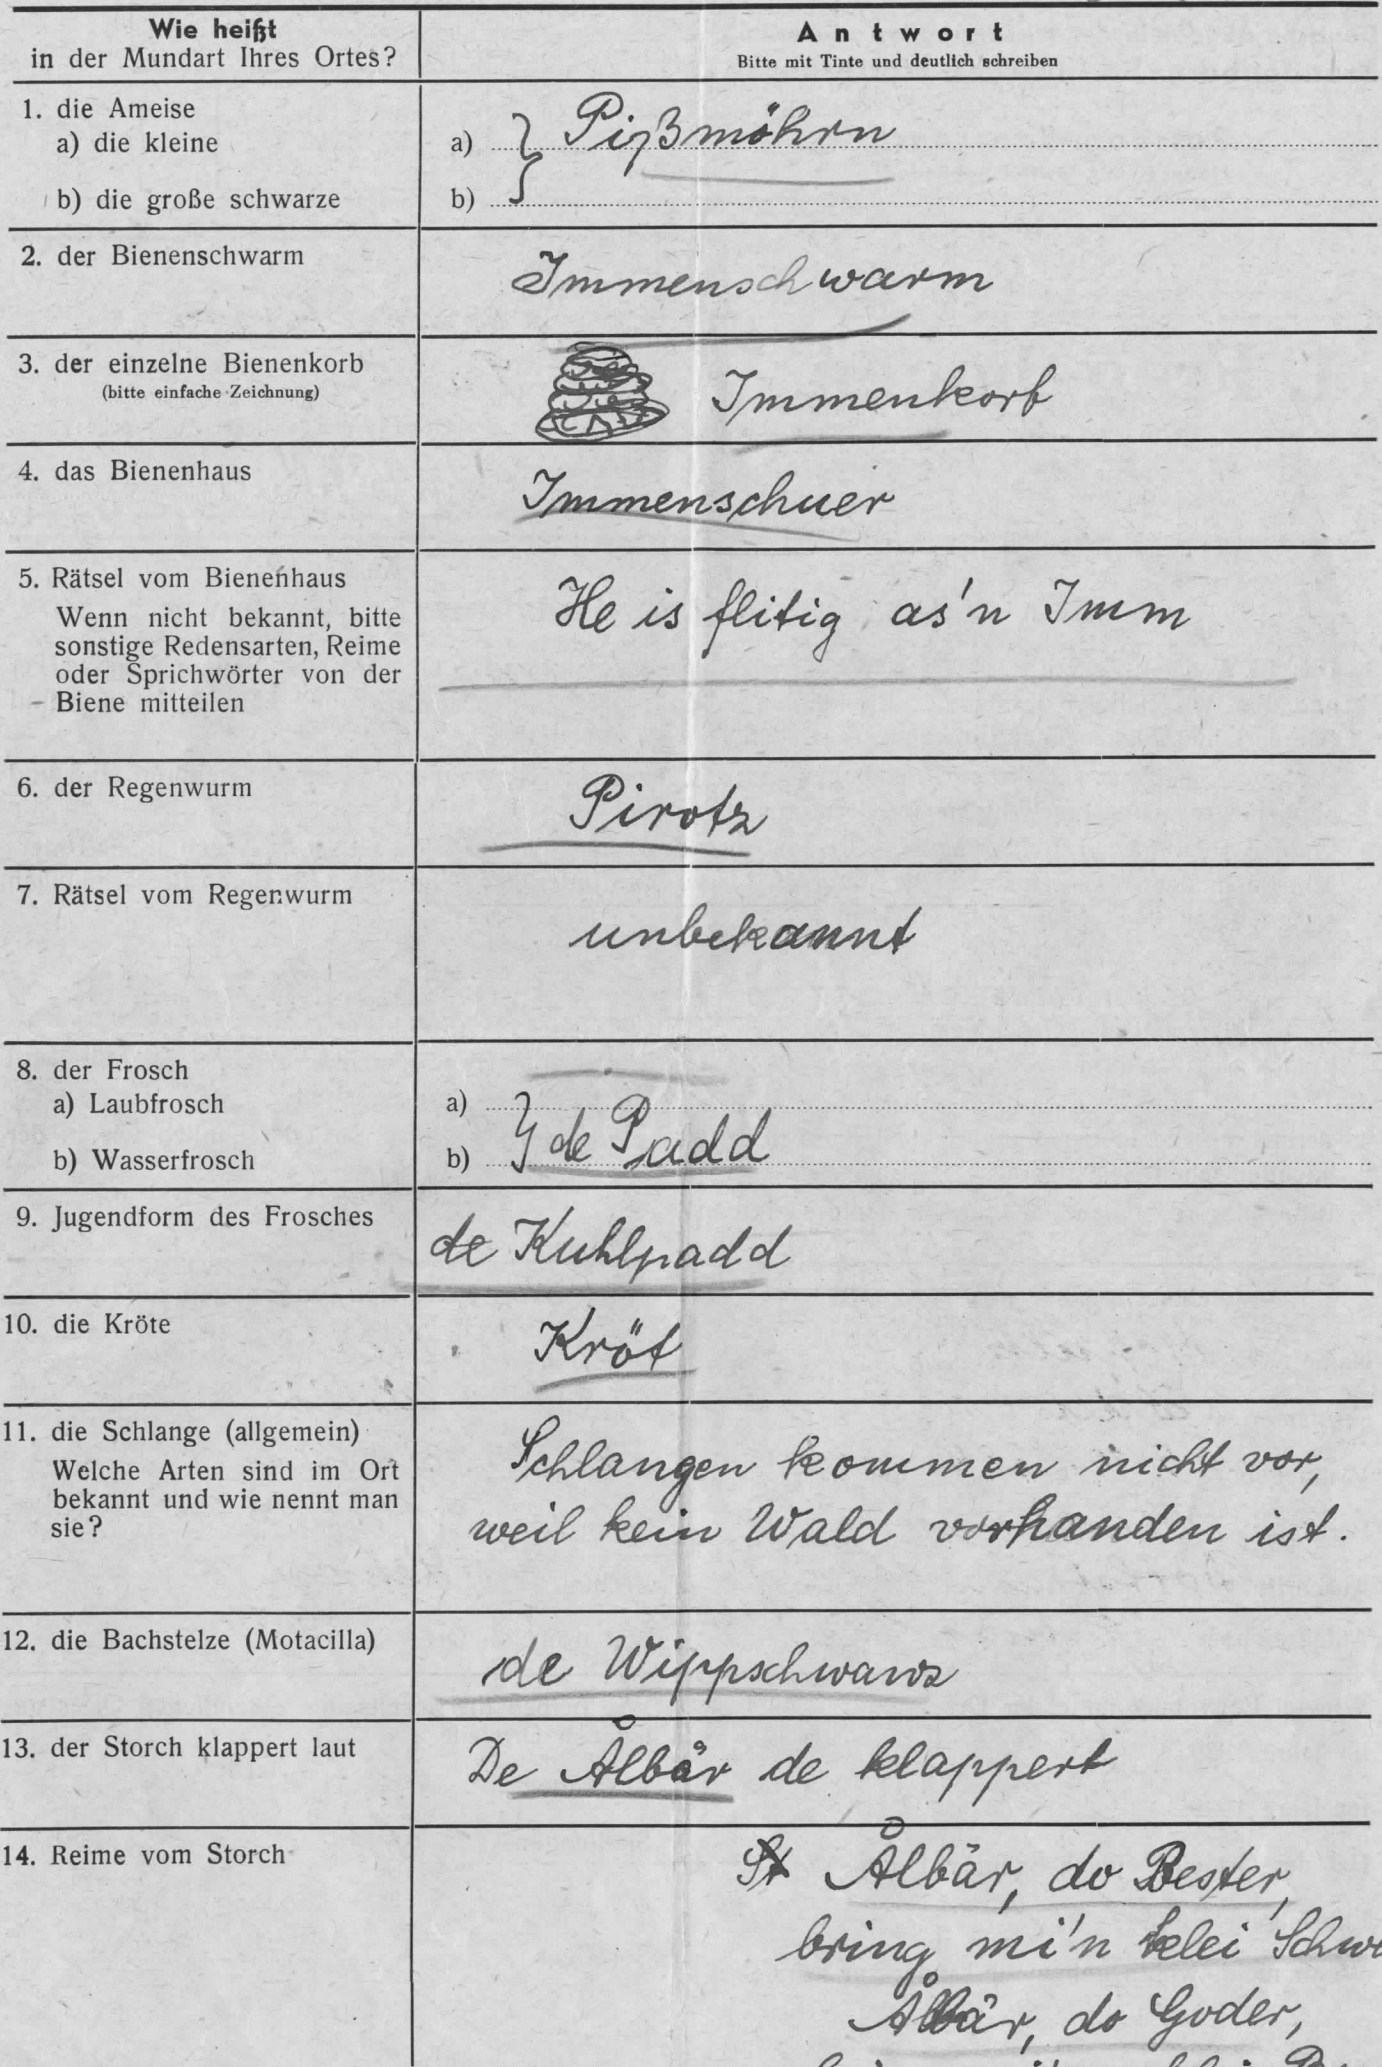 Wie heißt
in der Mundart Ihres Ortes?
Antwort
Bitte mit Tinte und deutlich schreiben
1. die Ameise
a) die kleine
a) Pißmöhrn
b) die große schwarze
b)
2. der Bienenschwarm
Immenschwarm
3. der einzelne Bienenkorb
(bitte einfache Zeichnung)
Immenkorb
4. das Bienenhaus
Immenschuer
5. Rätsel vom Bienenhaus
Wenn nicht bekannt, bitte
sonstige Redensarten, Reime
oder Sprichwörter von der
Biene mitteilen
He is flitig as'n Imm
6. der Regenwurm
Pirotz
7. Rätsel vom Regenwurm
unbekannt
8. der Frosch
a) Laubfrosch
a)
b) Wasserfrosch
b) de Padd
9. Jugendform des Frosches
de Kuhlpadd
10. die Kröte
Kröt
11. die Schlange (allgemein)
Welche Arten sind im Ort
bekannt und wie nennt man
sie?
Schlangen kommen nicht vor,
weil kein Wald vorhanden ist.
12. die Bachstelze (Motacilla)
de Wippschwanz
13. der Storch klappert laut
De Ålbär de klappert
14. Reime vom Storch
St Ålbär, do Bester,
bring mi'n klei Schwe
Ålbär, do Goder,